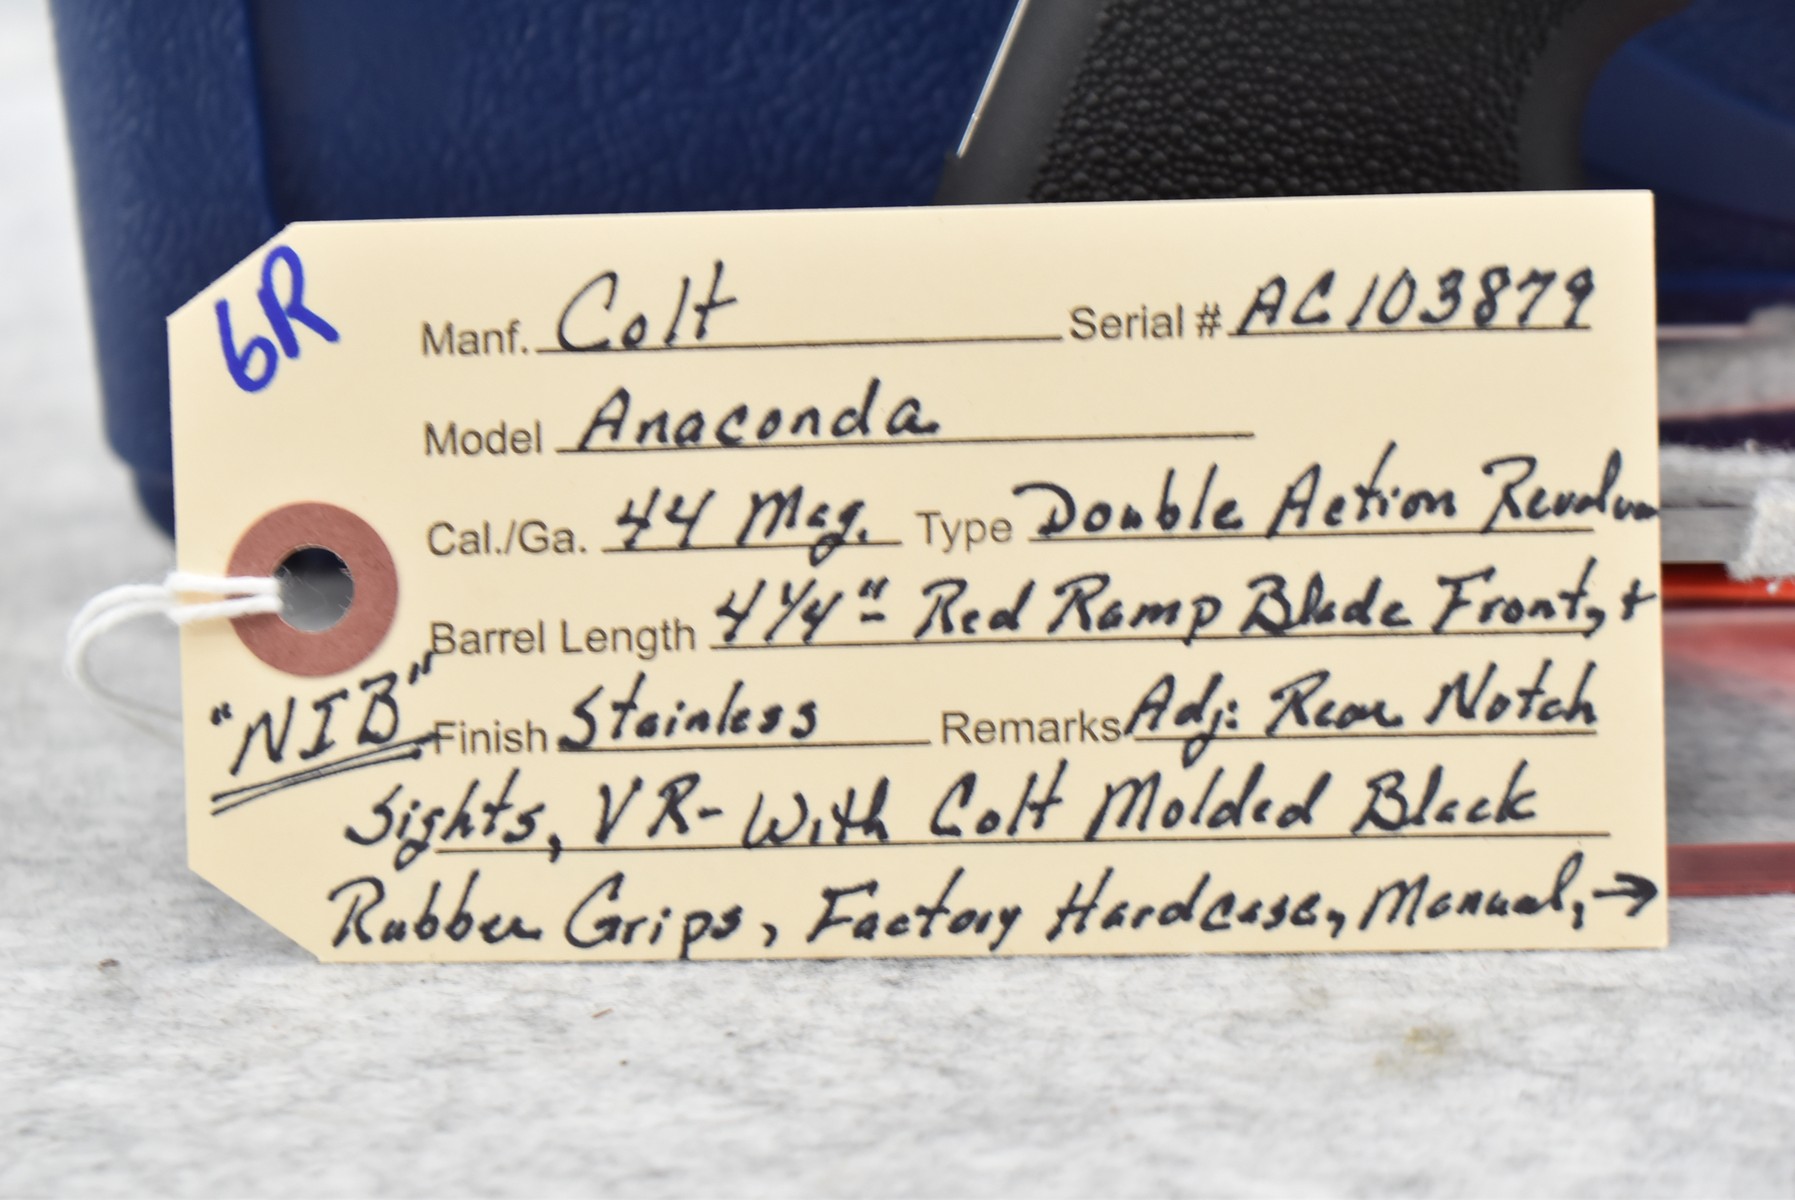 6R
Manf. Colt Serial # AC103879
Model Anaconda
Cal./Ga. 44 Mag. Type Double Action Revolver
Barrel Length 4 1/4" - Red Ramp Blade Front, +
"NIB" Finish Stainless Remarks Adj: Rear Notch
Sights, VR- With Colt Molded Black
Rubber Grips, Factory Hardcase, Manual, →